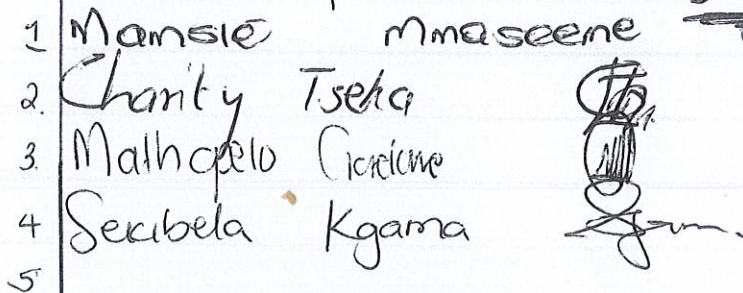 1 Mamsie Mmaseeme
2. Charity Tseka
3. Mathapelo
4 Sekibela Kgama
5